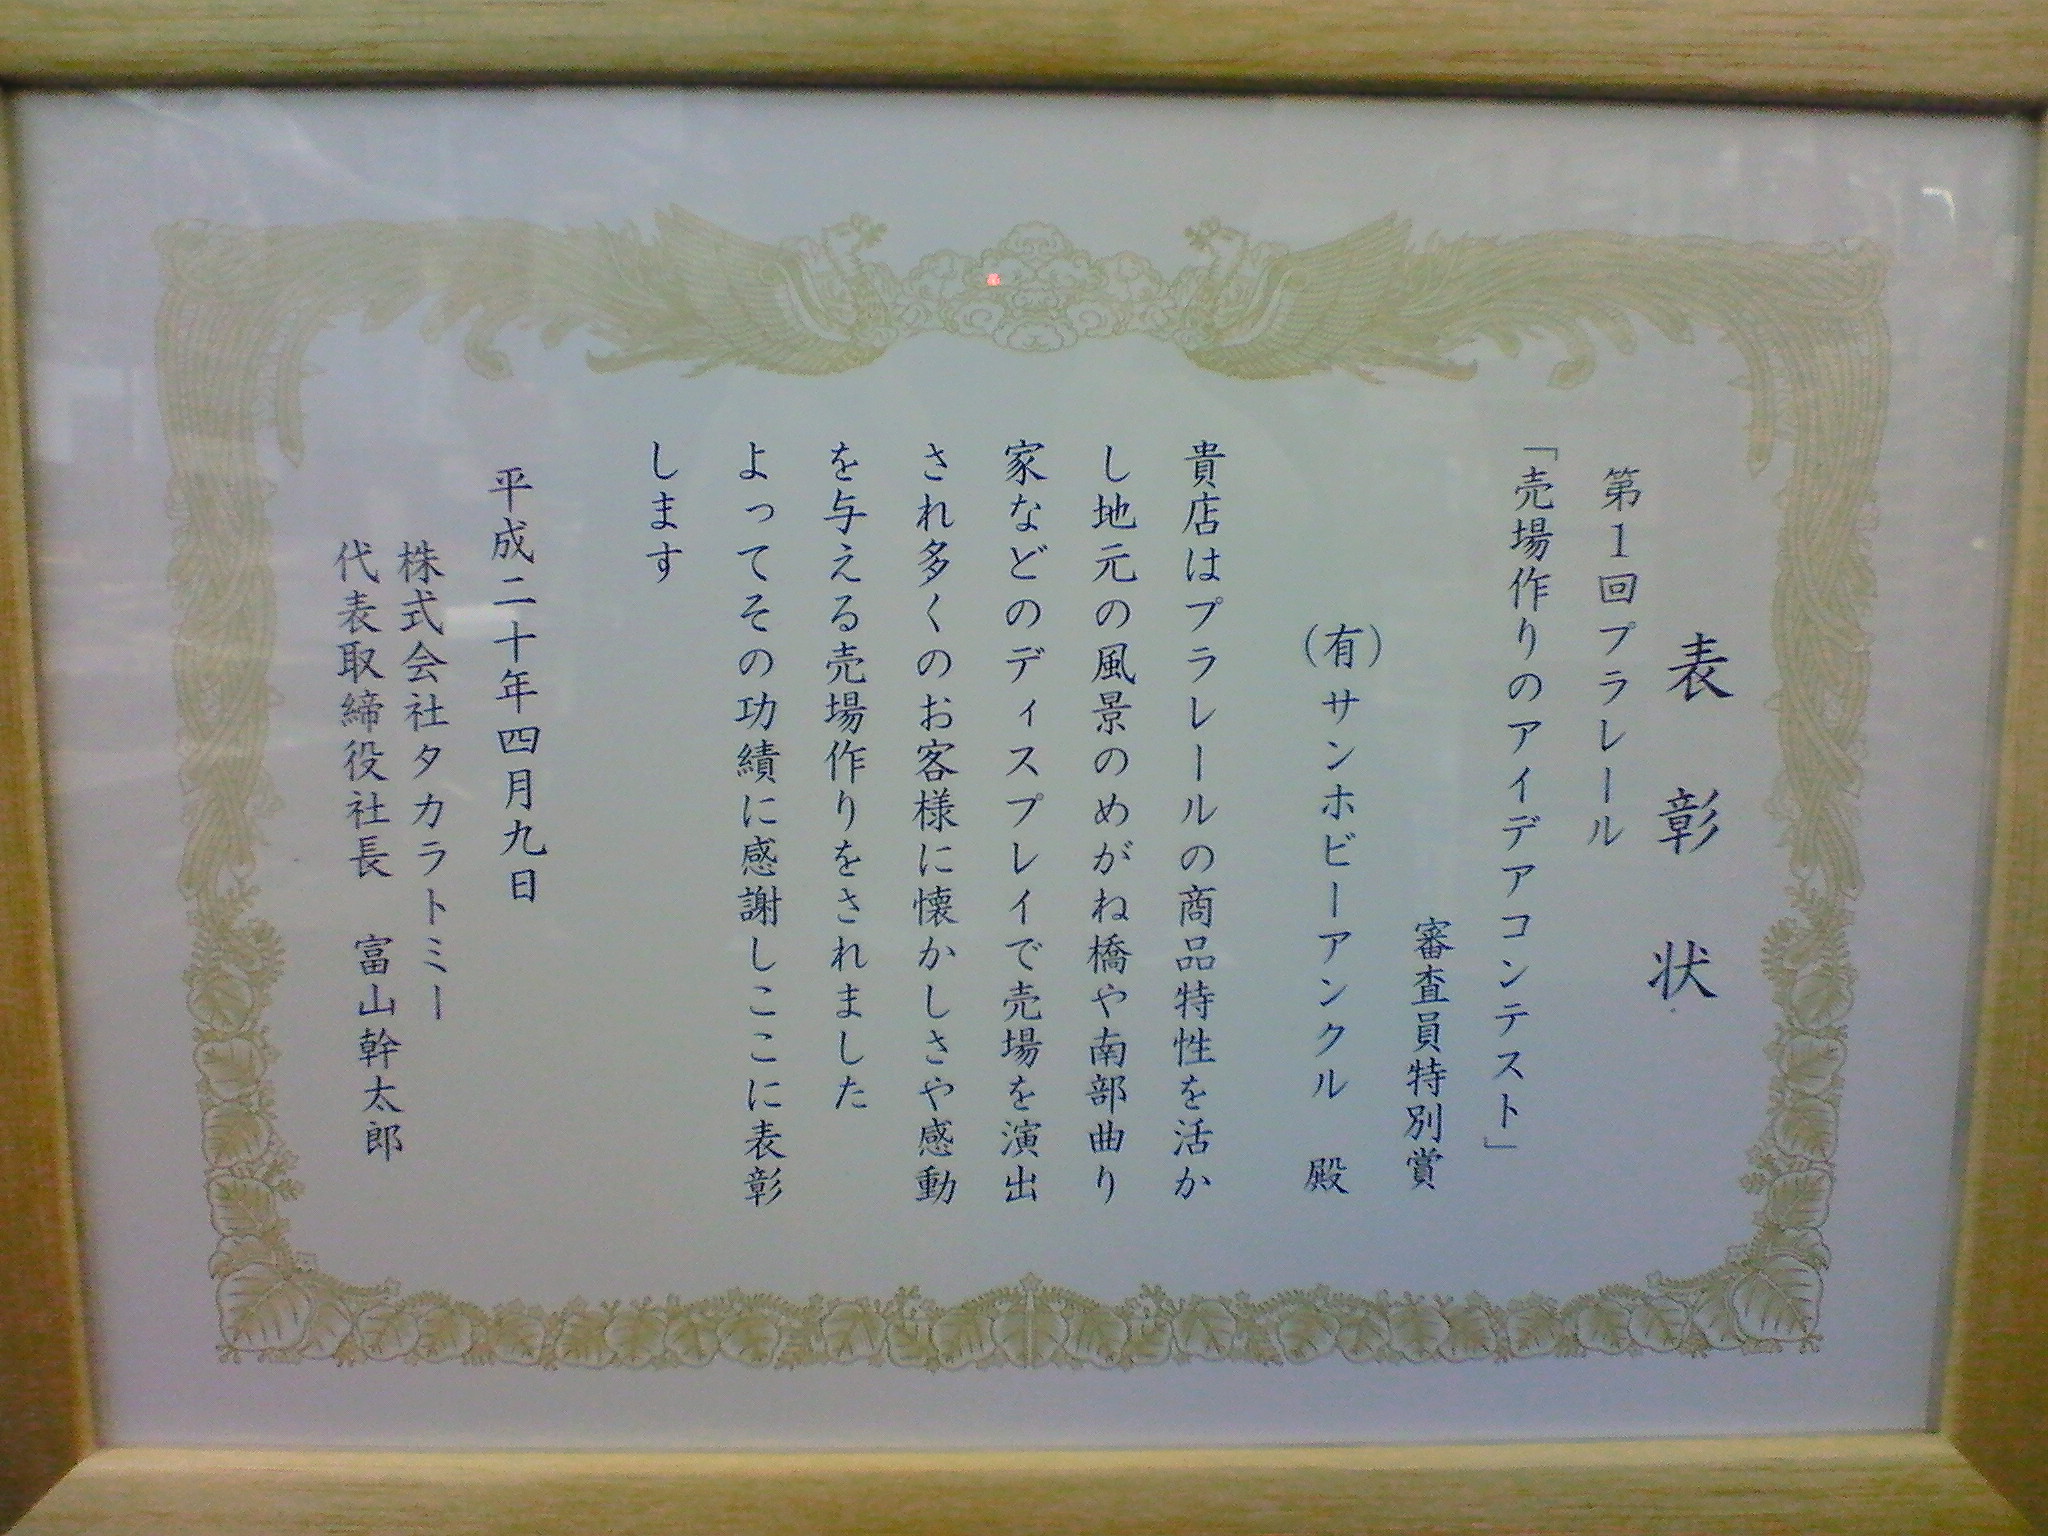 表彰状
第1回プラレール
「売場作りのアイデアコンテスト」
審査員特別賞
(有)サンホビーアンクル 殿
貴店はプラレールの商品特性を活か
し地元の風景のめがね橋や南部曲り
家などのディスプレイで売場を演出
され多くのお客様に懐かしさや感動
を与える売場作りをされました
よってその功績に感謝しここに表彰
します
平成二十年四月九日
株式会社タカラトミー
代表取締役社長 富山幹太郎